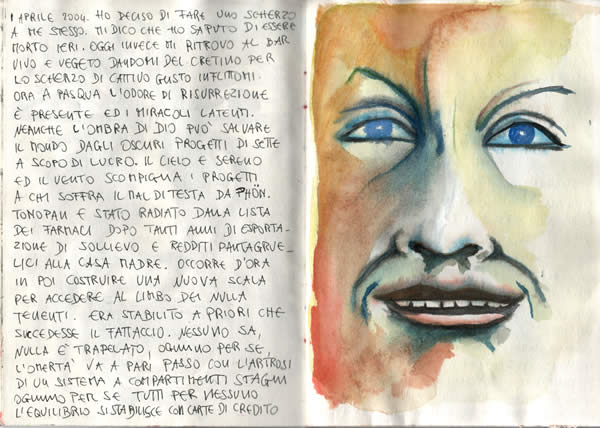 1 APRILE 2004. HO DECISO DI FARE UNO SCHERZO
A ME STESSO. MI DICO CHE HO SAPUTO DI ESSERE
MORTO IERI. OGGI INVECE MI RITROVO AL BAR
VIVO E VEGETO DANDOMI DEL CRETINO PER
LO SCHERZO DI CATTIVO GUSTO INFLITTOMI.
ORA A PASQUA L'ODORE DI RISURREZIONE
È PRESENTE ED I MIRACOLI LATENTI.
NEANCHE L'OMBRA DI DIO PUÒ SALVARE
IL MONDO DAGLI OSCURI PROGETTI DI SETTE
A SCOPO DI LUCRO. IL CIELO È SERENO
ED IL VENTO SCOMPIGLIA I PROGETTI
A CHI SOFFRA IL MAL DI TESTA DA PHÖN.
TONOPAN È STATO RADIATO DALLA LISTA
DEI FARMACI DOPO TANTI ANNI DI ESPORTA-
ZIONE DI SOLLIEVO E REDDITI PANTAGRUE-
LICI ALLA CASA MADRE. OCCORRE D'ORA
IN POI COSTRUIRE UNA NUOVA SCALA
PER ACCEDERE AL LIMBO DEI NULLA
TENENTI. ERA STABILITO A PRIORI CHE
SUCCEDESSE IL FATTACCIO. NESSUNO SA,
NULLA È TRAPELATO, OGNUNO PER SE,
L'OMERTÀ VA A PARI PASSO CON L'ARTROSI
DI UN SISTEMA A COMPARTIMENTI STAGNI
OGNUNO PER SE TUTTI PER NESSUNO
L'EQUILIBRIO SI STABILISCE CON CARTE DI CREDITO